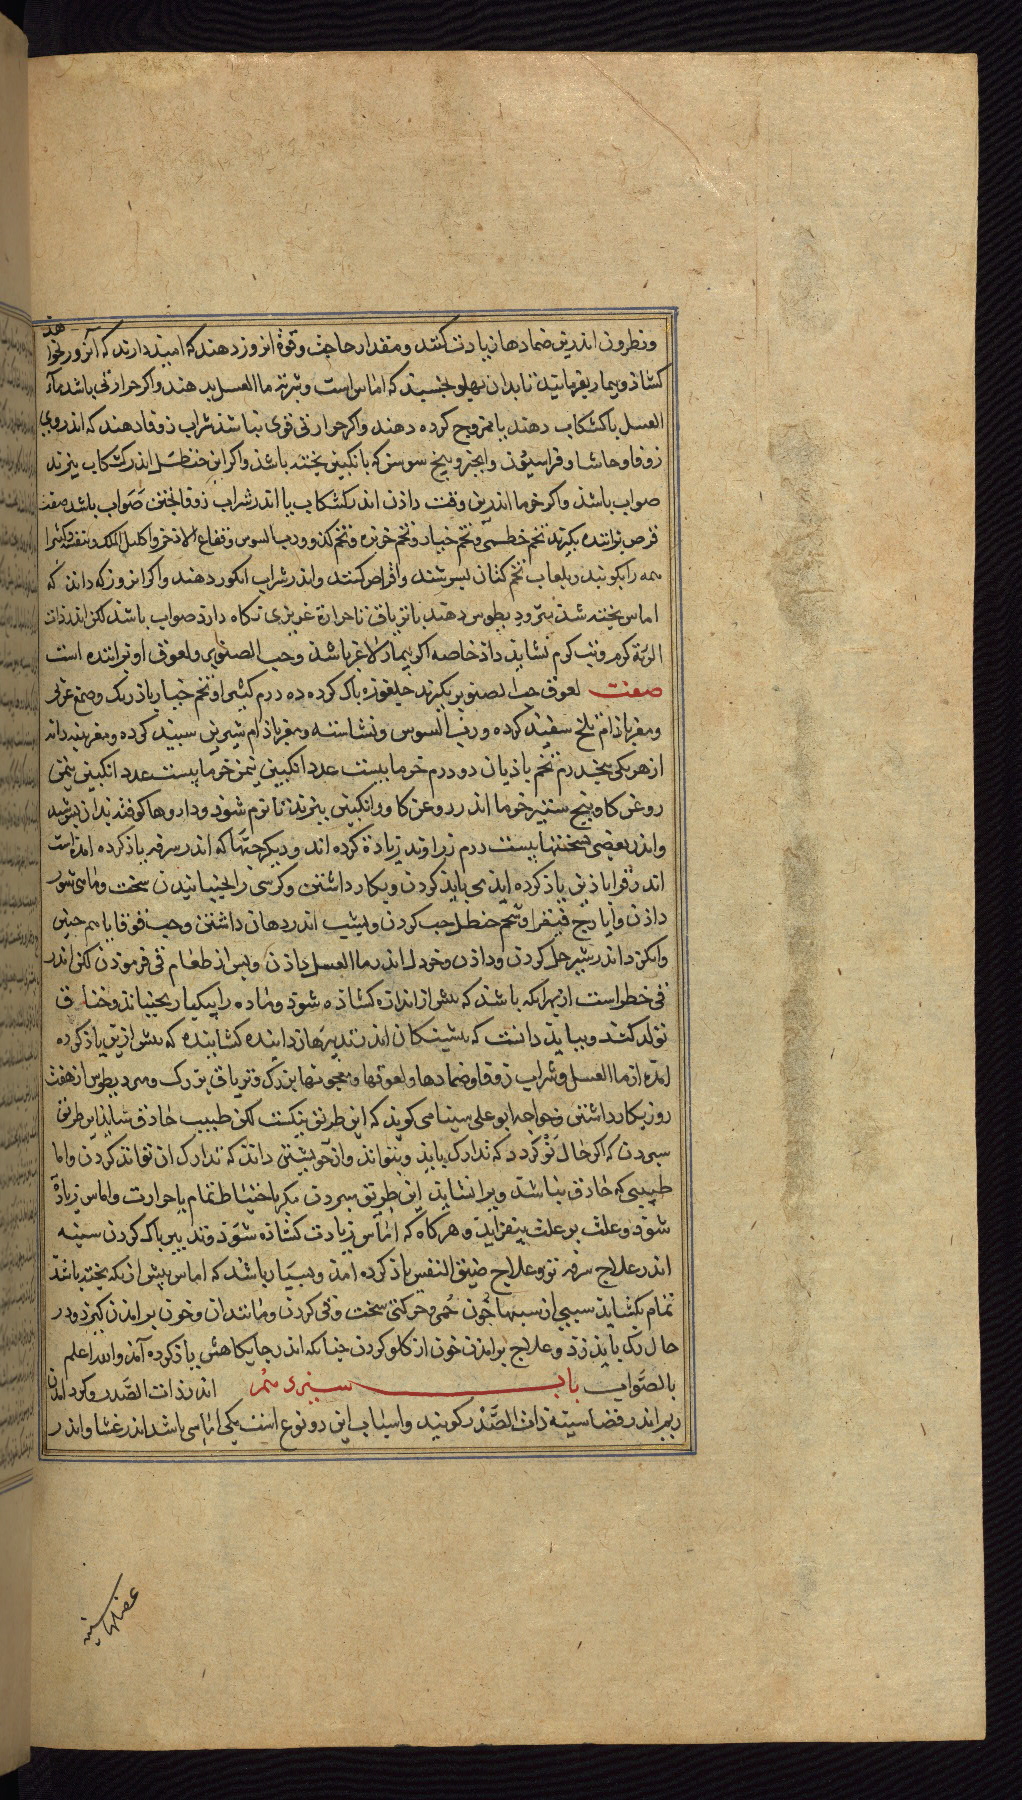 ونطرون اندرین ضمادها زیادت کنند و مقدار حاجت و قوة انروز دهند که امید دارند که آنروز بخواهد
کشاذ و بیمار بفرمایند تا بدان پهلو خسپد که اماس است و شربت ما العسل بدهند واکر حرارتی باشد ماء
العسل با کشکاب دهند یا ممزوج کرده دهند واکر حرارتی قوی نباشذ شراب زوفا دهند که اندر وی
زوفا و حاشا و فراسیون و انجیر و بیخ سوسن که با انکبین پخته باشذ واکر این اندر کشکاب پزند
صواب باشذ واکر خرما اندرین وقت داذن اندر کشکاب یا اندر شراب زوفا پختن صواب باشد صفت
قرص براننده بکیرند تخم خطمی و تخم خیار و تخم خربزه و تخم کدو ورب السوس وفقاح الاذخر واکلیل الملک وبنفشه وکثیرا
همه را بکوبند و بلعاب تخم کتان بسرشند واقراص کنند واندر شراب انکور دهند واکر انروز که دانند که
اماس پخته شذ مثرودیطوس دهند یا تریاق تا حرارة غریزی نکاه دارد صواب باشد لکن اندر ذات
الریة کرم وتب کرم نشاید داذ خاصه اکر بیمار لاغر باشذ وحب الصنوبر ولعوق او براننده است
صفت لعوق حب الصنوبر بکیرند جلغوزه پاک کرده ده درم کثیرا و تخم خیار باذرنک وصمغ عربی
ومغز باذام تلخ سفید کرده ورب السوس ونشاسته ومغز باذام شیرین سپید کرده ومغز پنبه دانه
از هر یکی پنجدرم تخم باذیان دو درم خرما بیست عدد انکبین نیم من خرما بیست عدد انکبین نیم من
روغن کاو پنج ستیر خرما اندر روغن کاو وانکبین بپزند تا نرم شوذ وداروها کوفته بدان بسرشند
واندر بعضی نسختها بیست درم زراوند زیادة کرده اند ودیکر حبها که اندر سرفه یاذ کرده امده است
اندر قراباذین یاذ کرده ایذ می بایذ کردن وبکار داشتن وکرسی را بجنبانیدن سخت وماهی شور
داذن وایارج فیقرا وشحم حنطل حب کردن وبشب اندر دهان داشتن وحب قوقایا هم چنین
وانکزد اندر شیر حل کردن وداذن وخردل اندر ما العسل داذن وپس از طعام قی فرموذن لکن اندر
قی خطر است از بهر انکه باشذ که بیش از اندازه کشاذه شوذ وماده را بیکبار بجنباند وخناق
تولد کند وبباید دانست که پیشینکان اندر تدبیرها زداینده کشاینده که پیش ازین یاذ کرده
امد از ما العسل وشراب زوفا وضمادها ولعوقها ومعجونها بزرک وتریاق بزرک ومثرودیطوس از هفت
روز بکار داشتن وخواجه ابو علی سینا می کوید که این طریق نیکست لکن طبیب حاذق شاید این طریق
سپردن که اکر حال نو کردد که تدارک بایذ وبتواند واز خویشتن داند که تدارک ان تواند کردن واما
طبیبی که حاذق نباشذ ویرا نشاید این طریق سپردن مکر باحتیاط تمام یا حرارت واماس زیادة
شوذ وعلت بر علت بیفزاید وهر کاه که اماس زیادت کشاذه شوذ وتدبیر پاک کردن سینه
اندر علاج سرفه تر وعلاج ضیق النفس یاذ کرده امذ وبسیار باشذ که اماس پیش از نکه پخته باشذ
تمام بکشاید بسببی از سببها چون حمی و حرکتی سخت وقی کردن وماننذ ان وخون برامذن کیرذ ودر
حال رک بایذ زد وعلاج برامذن خون از کلو کردن چنانکه اندر جایکاهش یاذ کرده آمذ والله اعلم
بالصواب باب سیزدهم اندر ذات الصدر وکرد امدن
ریم اندر فضا سینه ذات الصدر کویند واسباب این دو نوع است یکی اماسی باشد اندر غشا واندر
عضلهای سینه